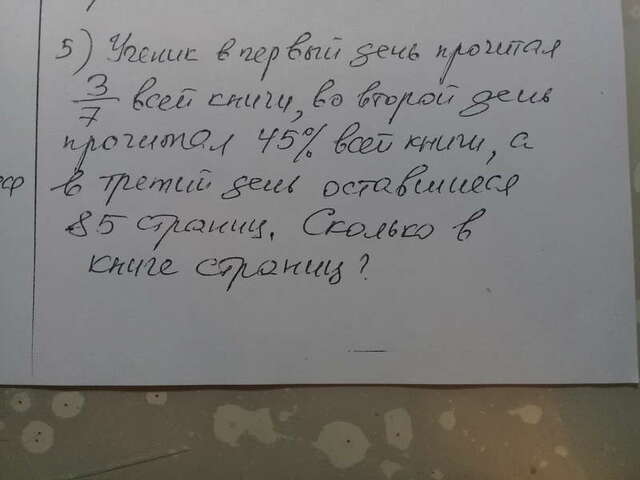 5) Ученик в первый день прочитал
3/7 всей книги, во второй день
прочитал 45% всей книги, а
в третий день оставшиеся
85 страниц. Сколько в
книге страниц?